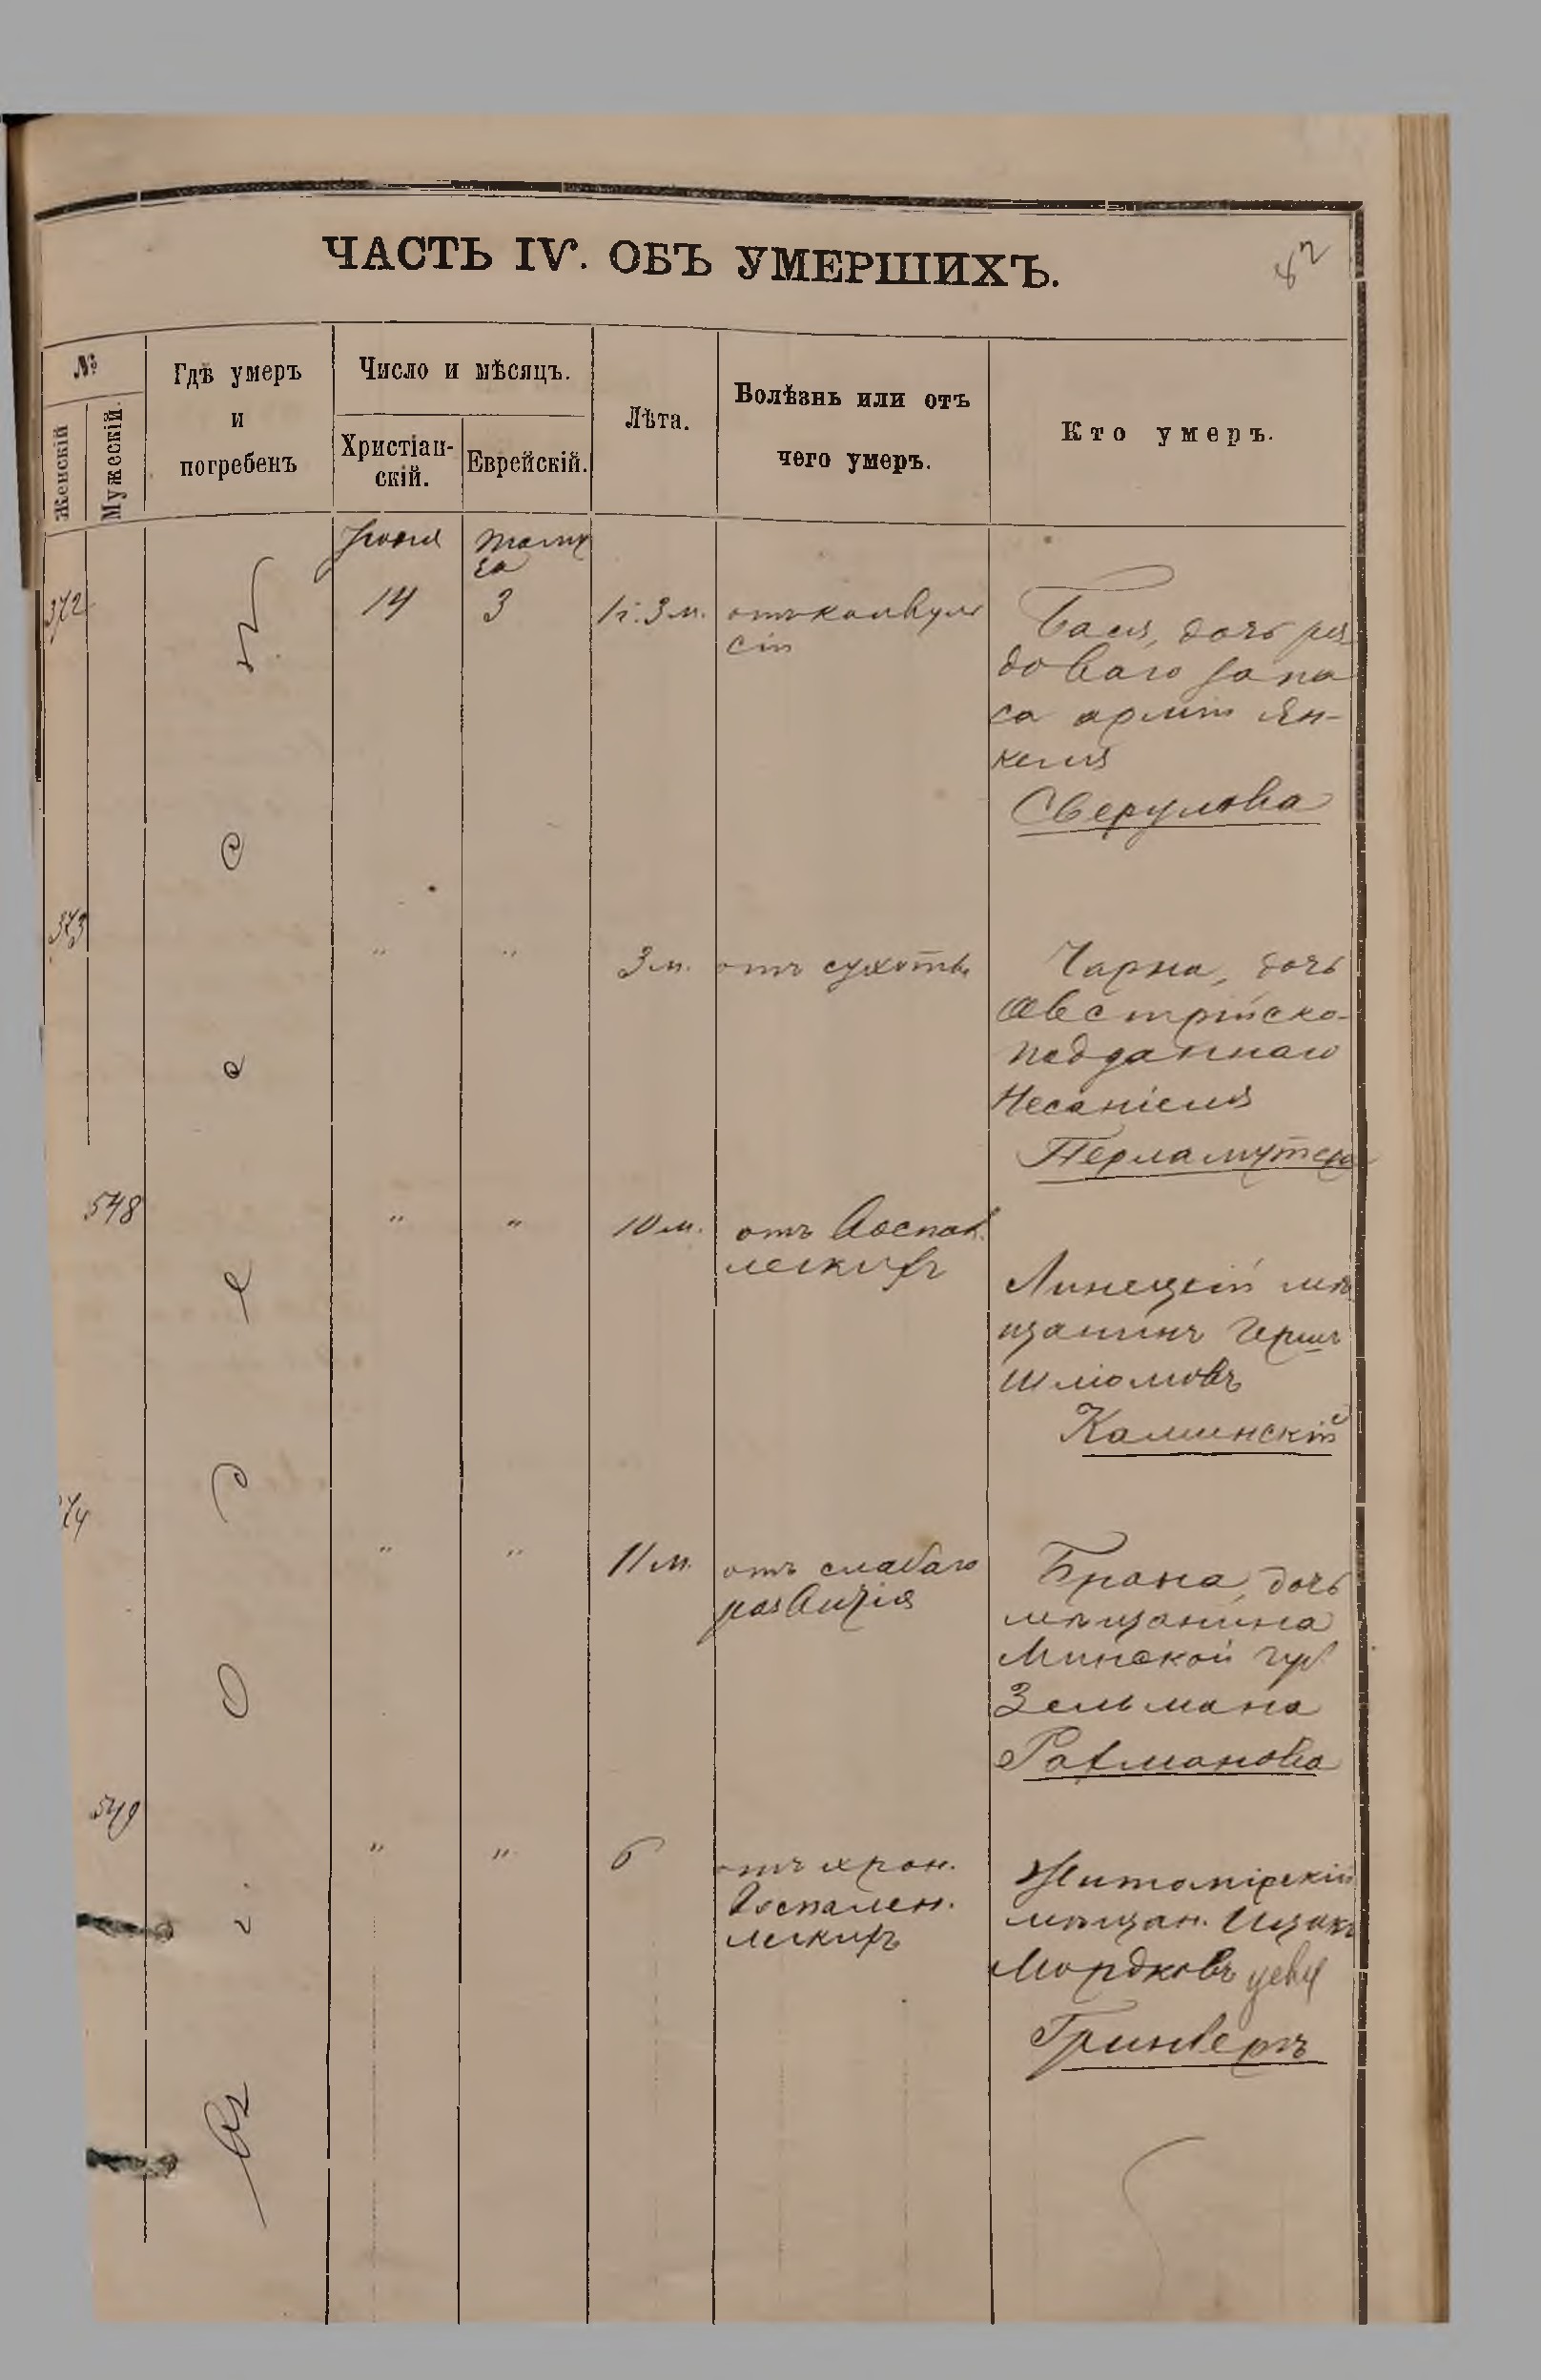 ЧАСТЬ IV. ОБЪ УМЕРШИХЪ.
82
№
Женскій
Мужескій.
Гдѣ умеръ
и
погребенъ
Число и мѣсяцъ.
Христіан-
скій.
Еврейскій.
Лѣта.
Болѣзнь или отъ
чего умеръ.
Кто умеръ.
Іюня
Таму
за
372
14
3
1 г. 3 м.
отъ конвуль
сіи
Бася, дочь ря
доваго запа
са арміи Ян-
келя
Сверулова
373
"
"
3 м.
отъ сухоты
Чарна, дочь
Австрійско-
подданнаго
Несаніеля
548
"
"
10 м.
отъ воспал.
легкихъ
Линецкій мѣ
щанинъ Гершъ
Шліомовъ
Каминскій
74
"
"
11 м.
отъ слабаго
развитія
дочь
мѣщанина
Минской губ
Зельмана
Рахманова
549
"
"
6
отъ хрон.
воспален.
легкихъ
Житомірскій
мѣщан. Ицакъ
Мордковъ
Гринбергъ
Въ
О
д
е
с
с
ѣ